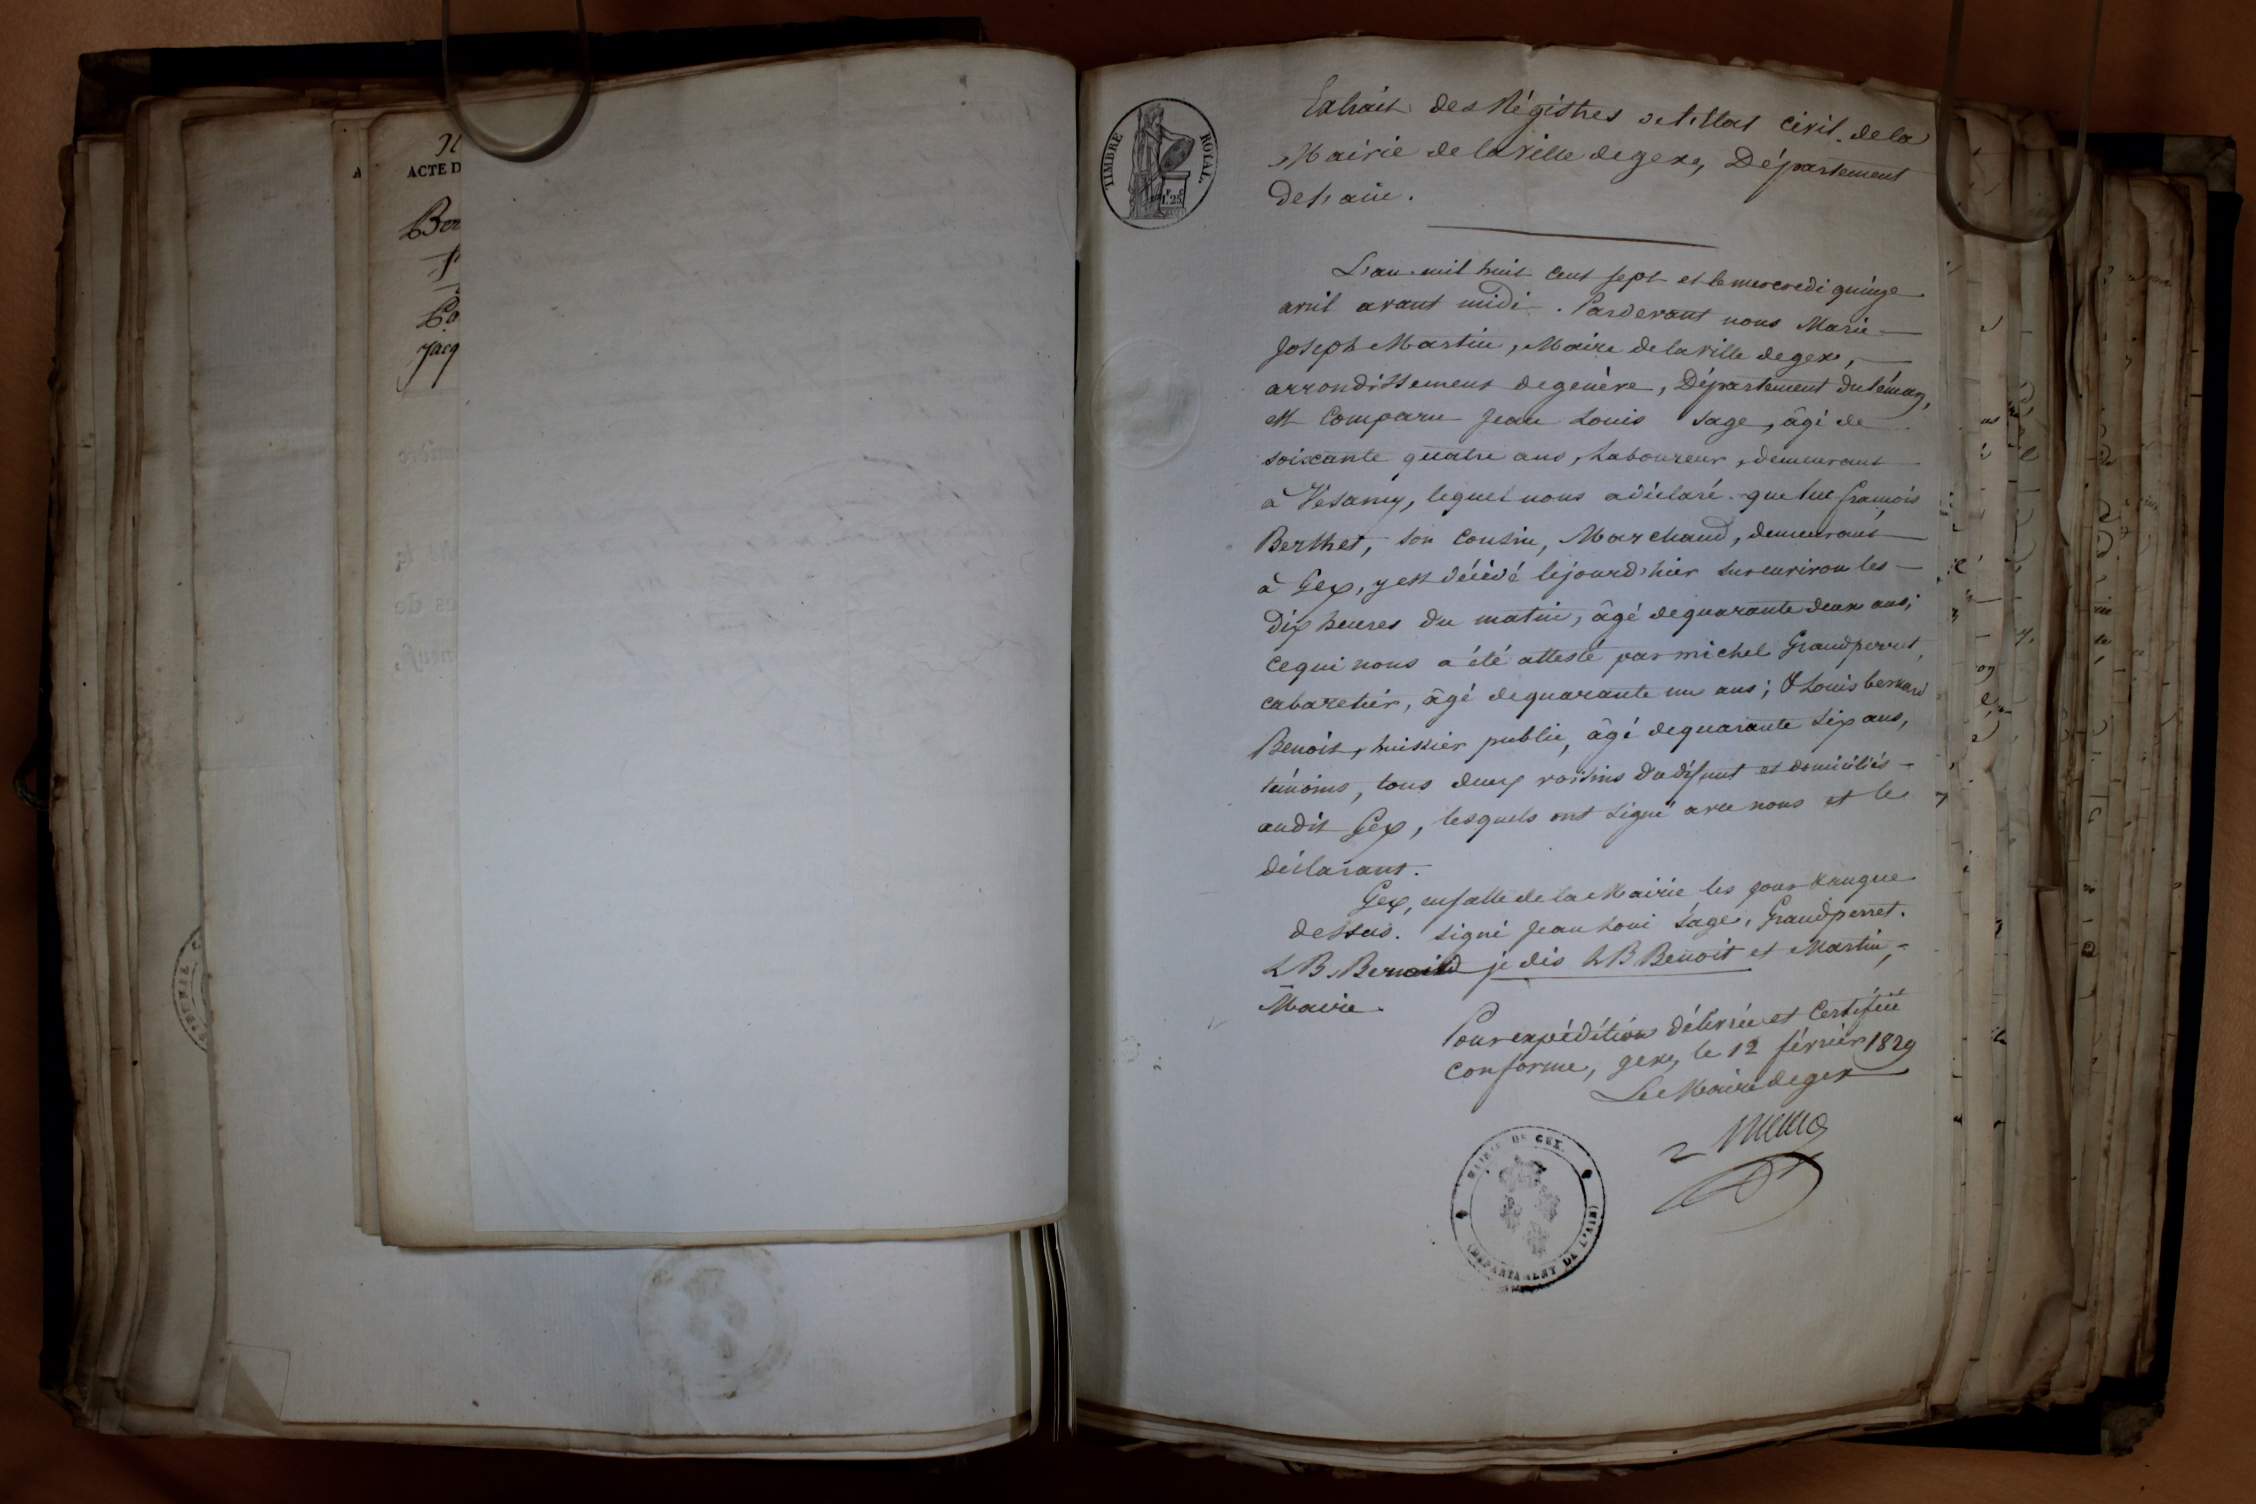 ACTE D
Ber
Jacq
TIMBRE ROYAL.
Extrait des Régistres de l'Etat civil de la
Mairie de la ville de gex, Département
de l'ain.
L'an mil huit cent sept et le mercredi quinze
avril avant midi. Pardevant nous Marie
Joseph Martin, Maire de la ville de gex,
arrondissement de genève, Département du Léman,
est comparu Jean Louis Sage, âgé de
soixante quatre ans, Laboureur, demeurant
à Vésancy, lequel nous a déclaré que françois
Berthet, son Cousin, Marchand, demeurant
à Gex, y est décédé le jour d'hier sur environ les
dix heures du matin, âgé de quarante deux ans;
ce qui nous a été attesté par michel Grandperret,
cabaretier, âgé de quarante un ans; & Louis bernard
Benoit, huissier public, âgé de quarante six ans,
témoins, tous deux voisins du défunt et domiciliés
audit Gex, lesquels ont signé avec nous et le
déclarant.
Gex, en salle de la Mairie les jour & an que
dessus. signé Jean Loui Sage, Grandperret.
L B. je dis L B Benoit et Martin,
Maire.
Pour expédition délivrée et Certifiée
conforme, gex, le 12 février 1829
Le Maire de gex
MAIRIE DE GEX.
(DEPARTAMENT DE L'AIN)